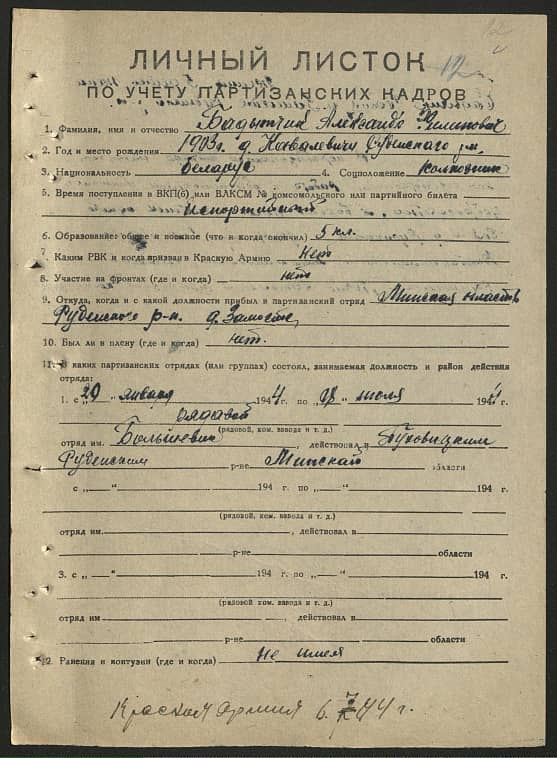 12
12
ЛИЧНЫЙ ЛИСТОК
ПО УЧЕТУ ПАРТИЗАНСКИХ КАДРОВ
1. Фамилия, имя и отчество Александр Филипович
2. Год и место рождения 1903г. д. Ковалевичи м.
3. Национальность Беларус 4. Соцположение Колхозник
5. Время поступления в ВКП(б) или ВЛКСМ № комсомольского или партийного билета
Беспортийный
6. Образование: общее и военное (что и когда окончил) 3 кл.
7. Каким РВК и когда призван в Красную Армию Нет
8. Участие на фронтах (где и когда) нет
9. Откуда, когда и с какой должности прибыл в партизанский отряд Минская область
Руденского р-н. д. Замостье
10. Был ли в плену (где и когда) нет.
11. В каких партизанских отрядах (или группах) состоял, занимаемая должность и район действия
отряда:
1. с „20 " января 1944 г. по „ " июля 194 г.
рядавой
(рядовой, ком. взвода и т. д.)
отряд им. Большевик, действовал в Пуховицким
Руденским р-не Минской области
с „ " 194 г. по „ " 194 г.
(рядовой, ком. взвода и т. д.)
отряд им. , действовал в
р-не области
3. с „ " 194 г. по „ " 194 г.
(рядовой, ком. взвода и т. д.)
отряд им , действовал в
р-не области
12. Ранения и контузии (где и когда) не имел
Красной армия 6. 7 44 г.